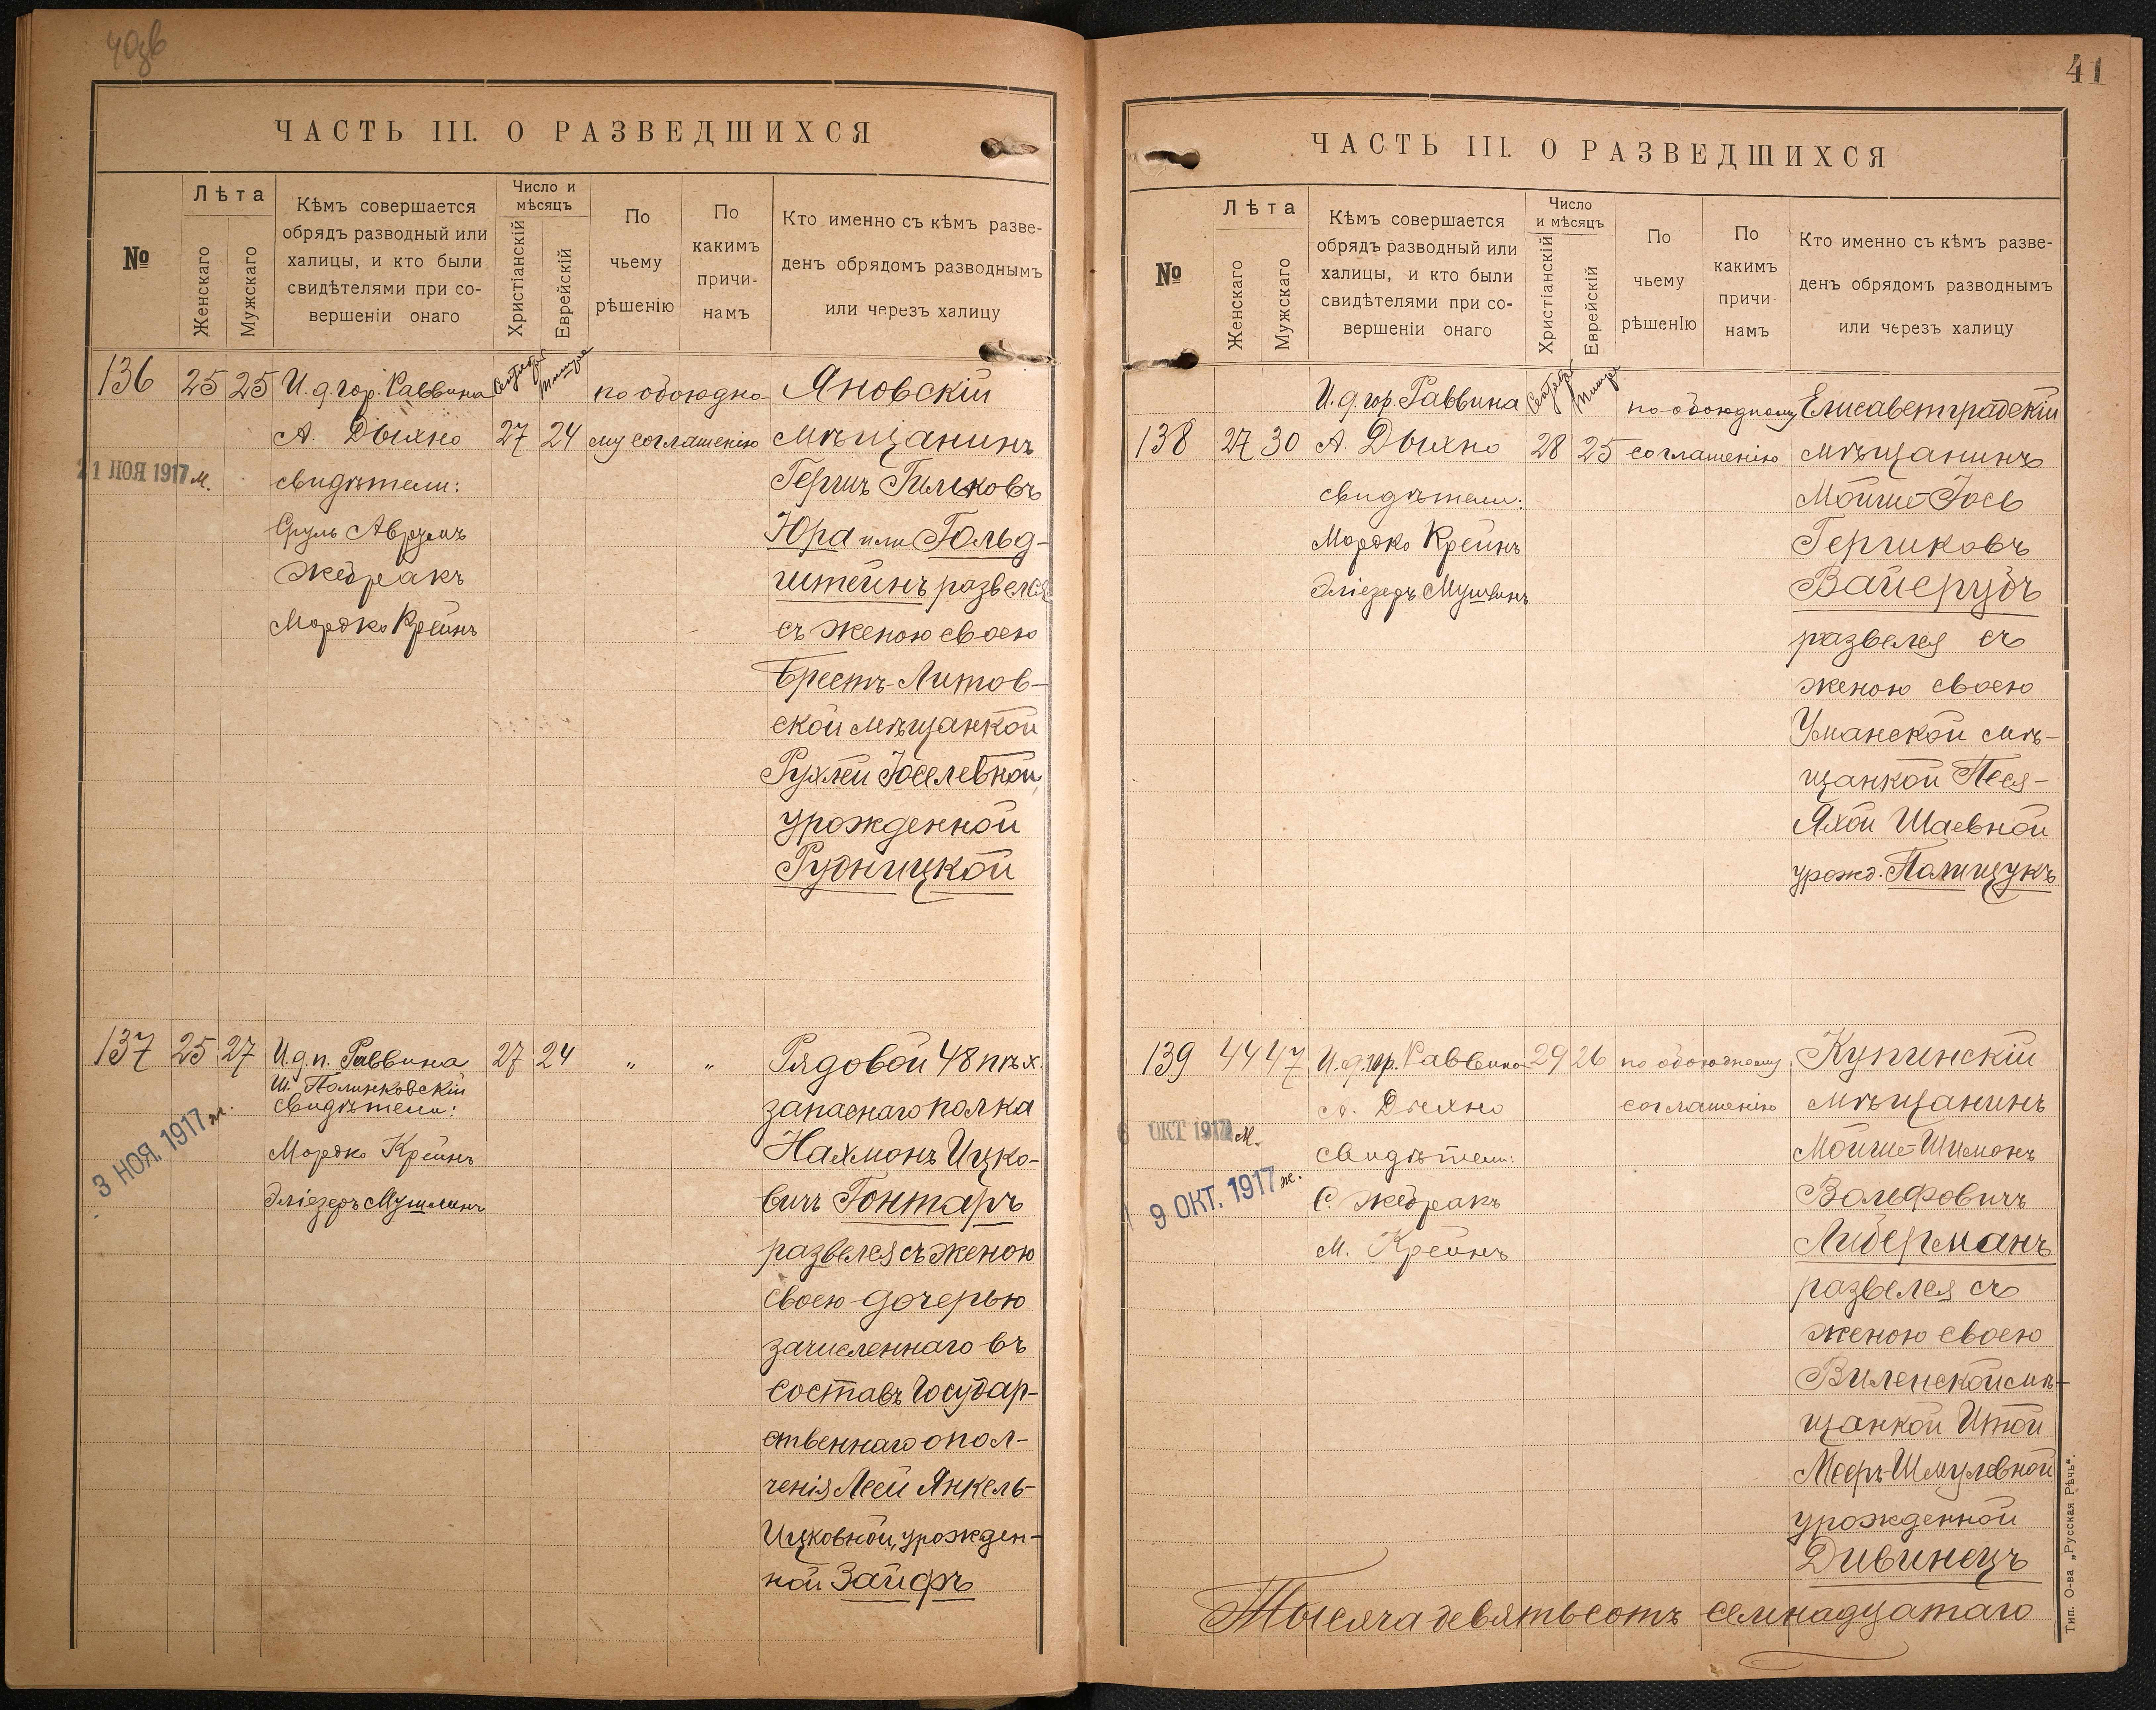 ЧАСТЬ III. О РАЗВЕДШИХСЯ
№
Лѣта
Женскаго
Мужскаго
Кѣмъ совершается
обрядъ разводный или
халицы, и кто были
свидѣтелями при со-
вершеніи онаго
Число и
мѣсяцъ
Христіанскій
Еврейскій
По
чьему
рѣшенію
По
какимъ
причи-
намъ
Кто именно съ кѣмъ разве-
денъ обрядомъ разводнымъ
или черезъ халицу
136 25 25
И. д. гор. Раввина
А. Дыхно
свидѣтели:
Сруль Аврумъ
Жебракъ
Мордко Крейнъ
Сентября
Тишре
27 24
по обоюдно-
му соглашенію
Яновскій
мѣщанинъ
Гершъ Гильковъ
Юра или Гольд-
штейнъ развелся
съ женою своею
Брестъ-Литов-
ской мѣщанкой
Рухлей Іоселевной,
урожденной
Рудницкой
21 НОЯ 1917 м.
137 25 27
И. д. п. Раввина
Ш. Полинковскій
свидѣтели:
Мордко Крейнъ
Эліезеръ Мушлинъ
27 24 " "
Рядовой 48 пѣх.
запаснаго полка
Нахмонъ Ицко-
вичъ Гонтаръ
развелся съ женою
своею дочерью
зачисленнаго въ
составъ Государ-
ственнаго опол-
ченія Леей Янкель-
Ицковной, урожден-
ной Зайфъ
3 НОЯ. 1917 ж.
41
ЧАСТЬ III. О РАЗВЕДШИХСЯ
№
Лѣта
Женскаго
Мужскаго
Кѣмъ совершается
обрядъ разводный или
халицы, и кто были
свидѣтелями при со-
вершеніи онаго
Число
и мѣсяцъ
Христіанскій
Еврейскій
По
чьему
рѣшенІю
По
какимъ
причи
намъ
Кто именно съ кѣмъ разве-
денъ обрядомъ разводнымъ
или черезъ халицу
138 27 30
И. д. гор. Раввина
А. Дыхно
свидѣтели:
Мордко Крейнъ
Эліезеръ Мушлинъ
Сентября
Тишре
28 25
по обоюдному
соглашенію
Елисаветградскій
мѣщанинъ
Мойше-Іось
Гершковъ
Вайсрубъ
развелся съ
женою своею
Уманской мѣ-
щанкой Песя-
Яхой Шаевной
урожд. Полищукъ
139 44 47
И. д. гор. Раввина
А. Дыхно
свидѣтели:
С. Жебракъ
М. Крейнъ
29 26
по обоюдному
соглашенію
Купинскій
мѣщанинъ
Мойше-Шимонъ
Вольфовичъ
Либерманъ
развелся съ
женою своею
Виленской мѣ-
щанкой Итой
Мееръ-Шмулевной
урожденной
Дивинецъ
6 ОКТ 1917 м.
9 ОКТ. 1917 ж.
Тысяча девятьсотъ семнадцатаго
Тип. О-ва „Русская Рѣчь".